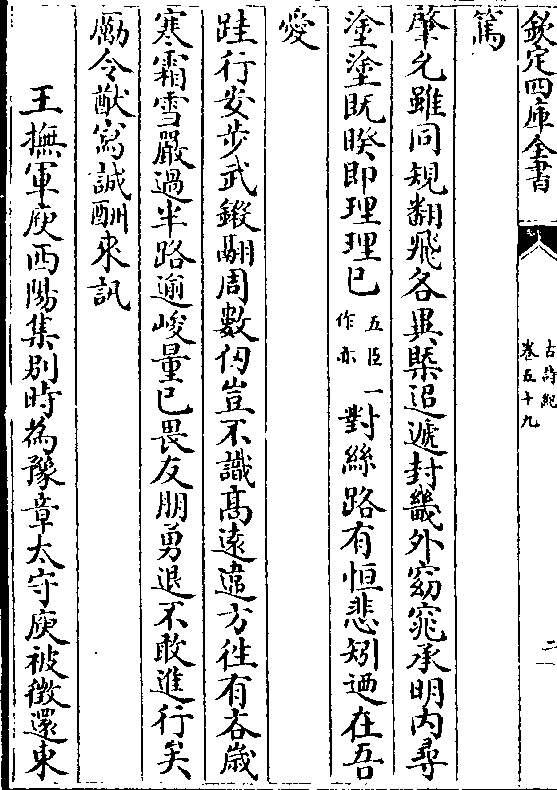 欽定四庫全書
古詩紀
卷五十九
二
篤
肇允雖同規翻飛各異槩迢遞封畿外窈窕承明内尋
塗塗既暌即理理已五臣作亦一對絲路有恒悲矧迺在吾
愛
跬行安步武鎩翮周數仞豈不識高遠違方往有吝歲
寒霜雪嚴過半路逾峻量已畏友朋勇退不敢進行矣
勵令猷寫誠酬來訊
王撫軍庾西陽集别時為豫章太守庾被徵還東